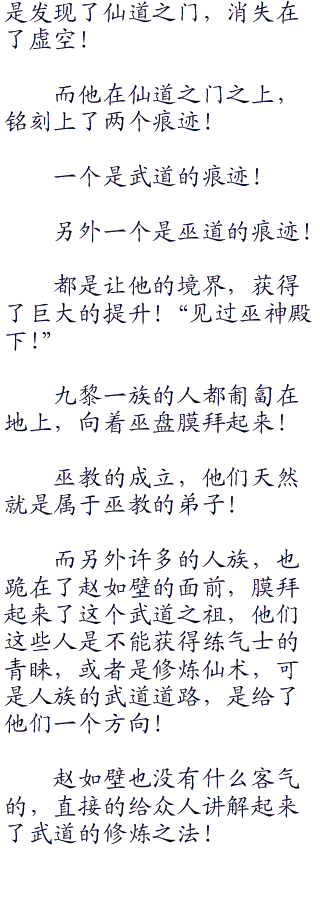 是发现了仙道之门，消失在
了虚空！
而他在仙道之门之上，
铭刻上了两个痕迹！
一个是武道的痕迹！
另外一个是巫道的痕迹！
都是让他的境界，获得
了巨大的提升！“见过巫神殿
下！”
九黎一族的人都匍匐在
地上，向着巫盘膜拜起来！
巫教的成立，他们天然
就是属于巫教的弟子！
而另外许多的人族，也
跪在了赵如壁的面前，膜拜
起来了这个武道之祖，他们
这些人是不能获得练气士的
青睐，或者是修炼仙术，可
是人族的武道道路，是给了
他们一个方向！
赵如壁也没有什么客气
的，直接的给众人讲解起来
了武道的修炼之法！